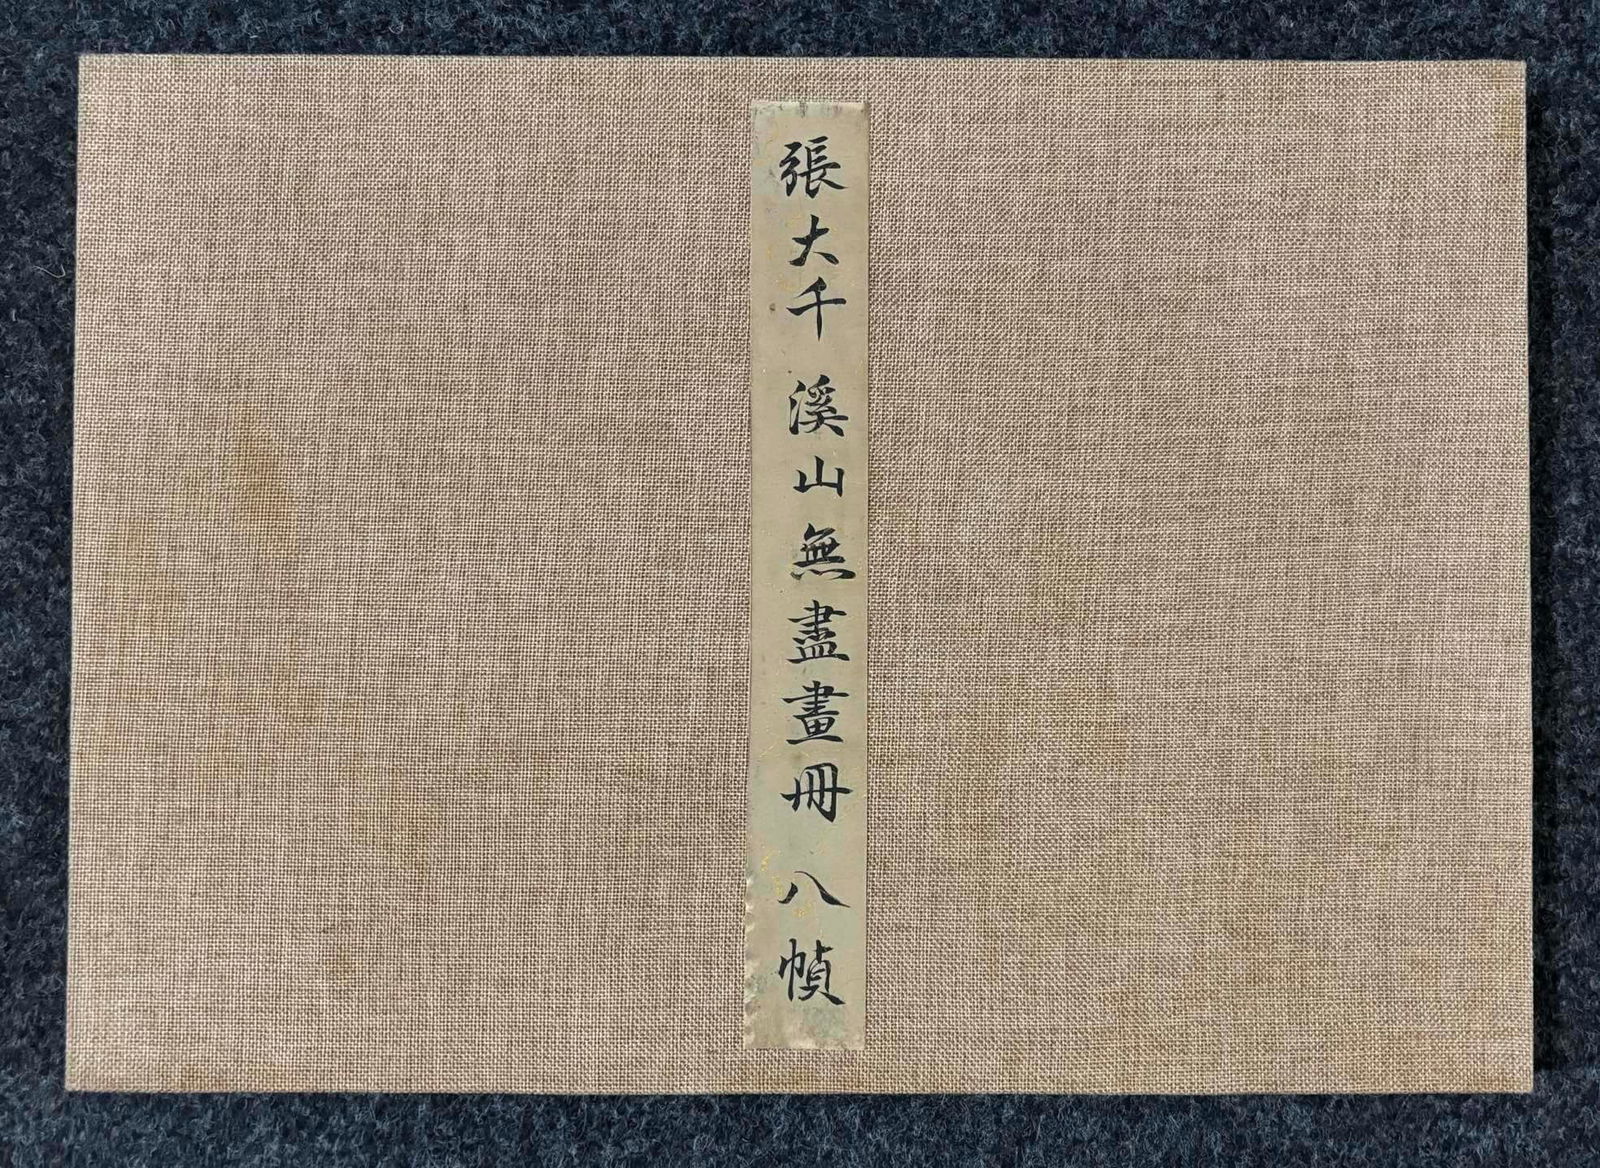 張大千 溪山無盡畫冊 八幀